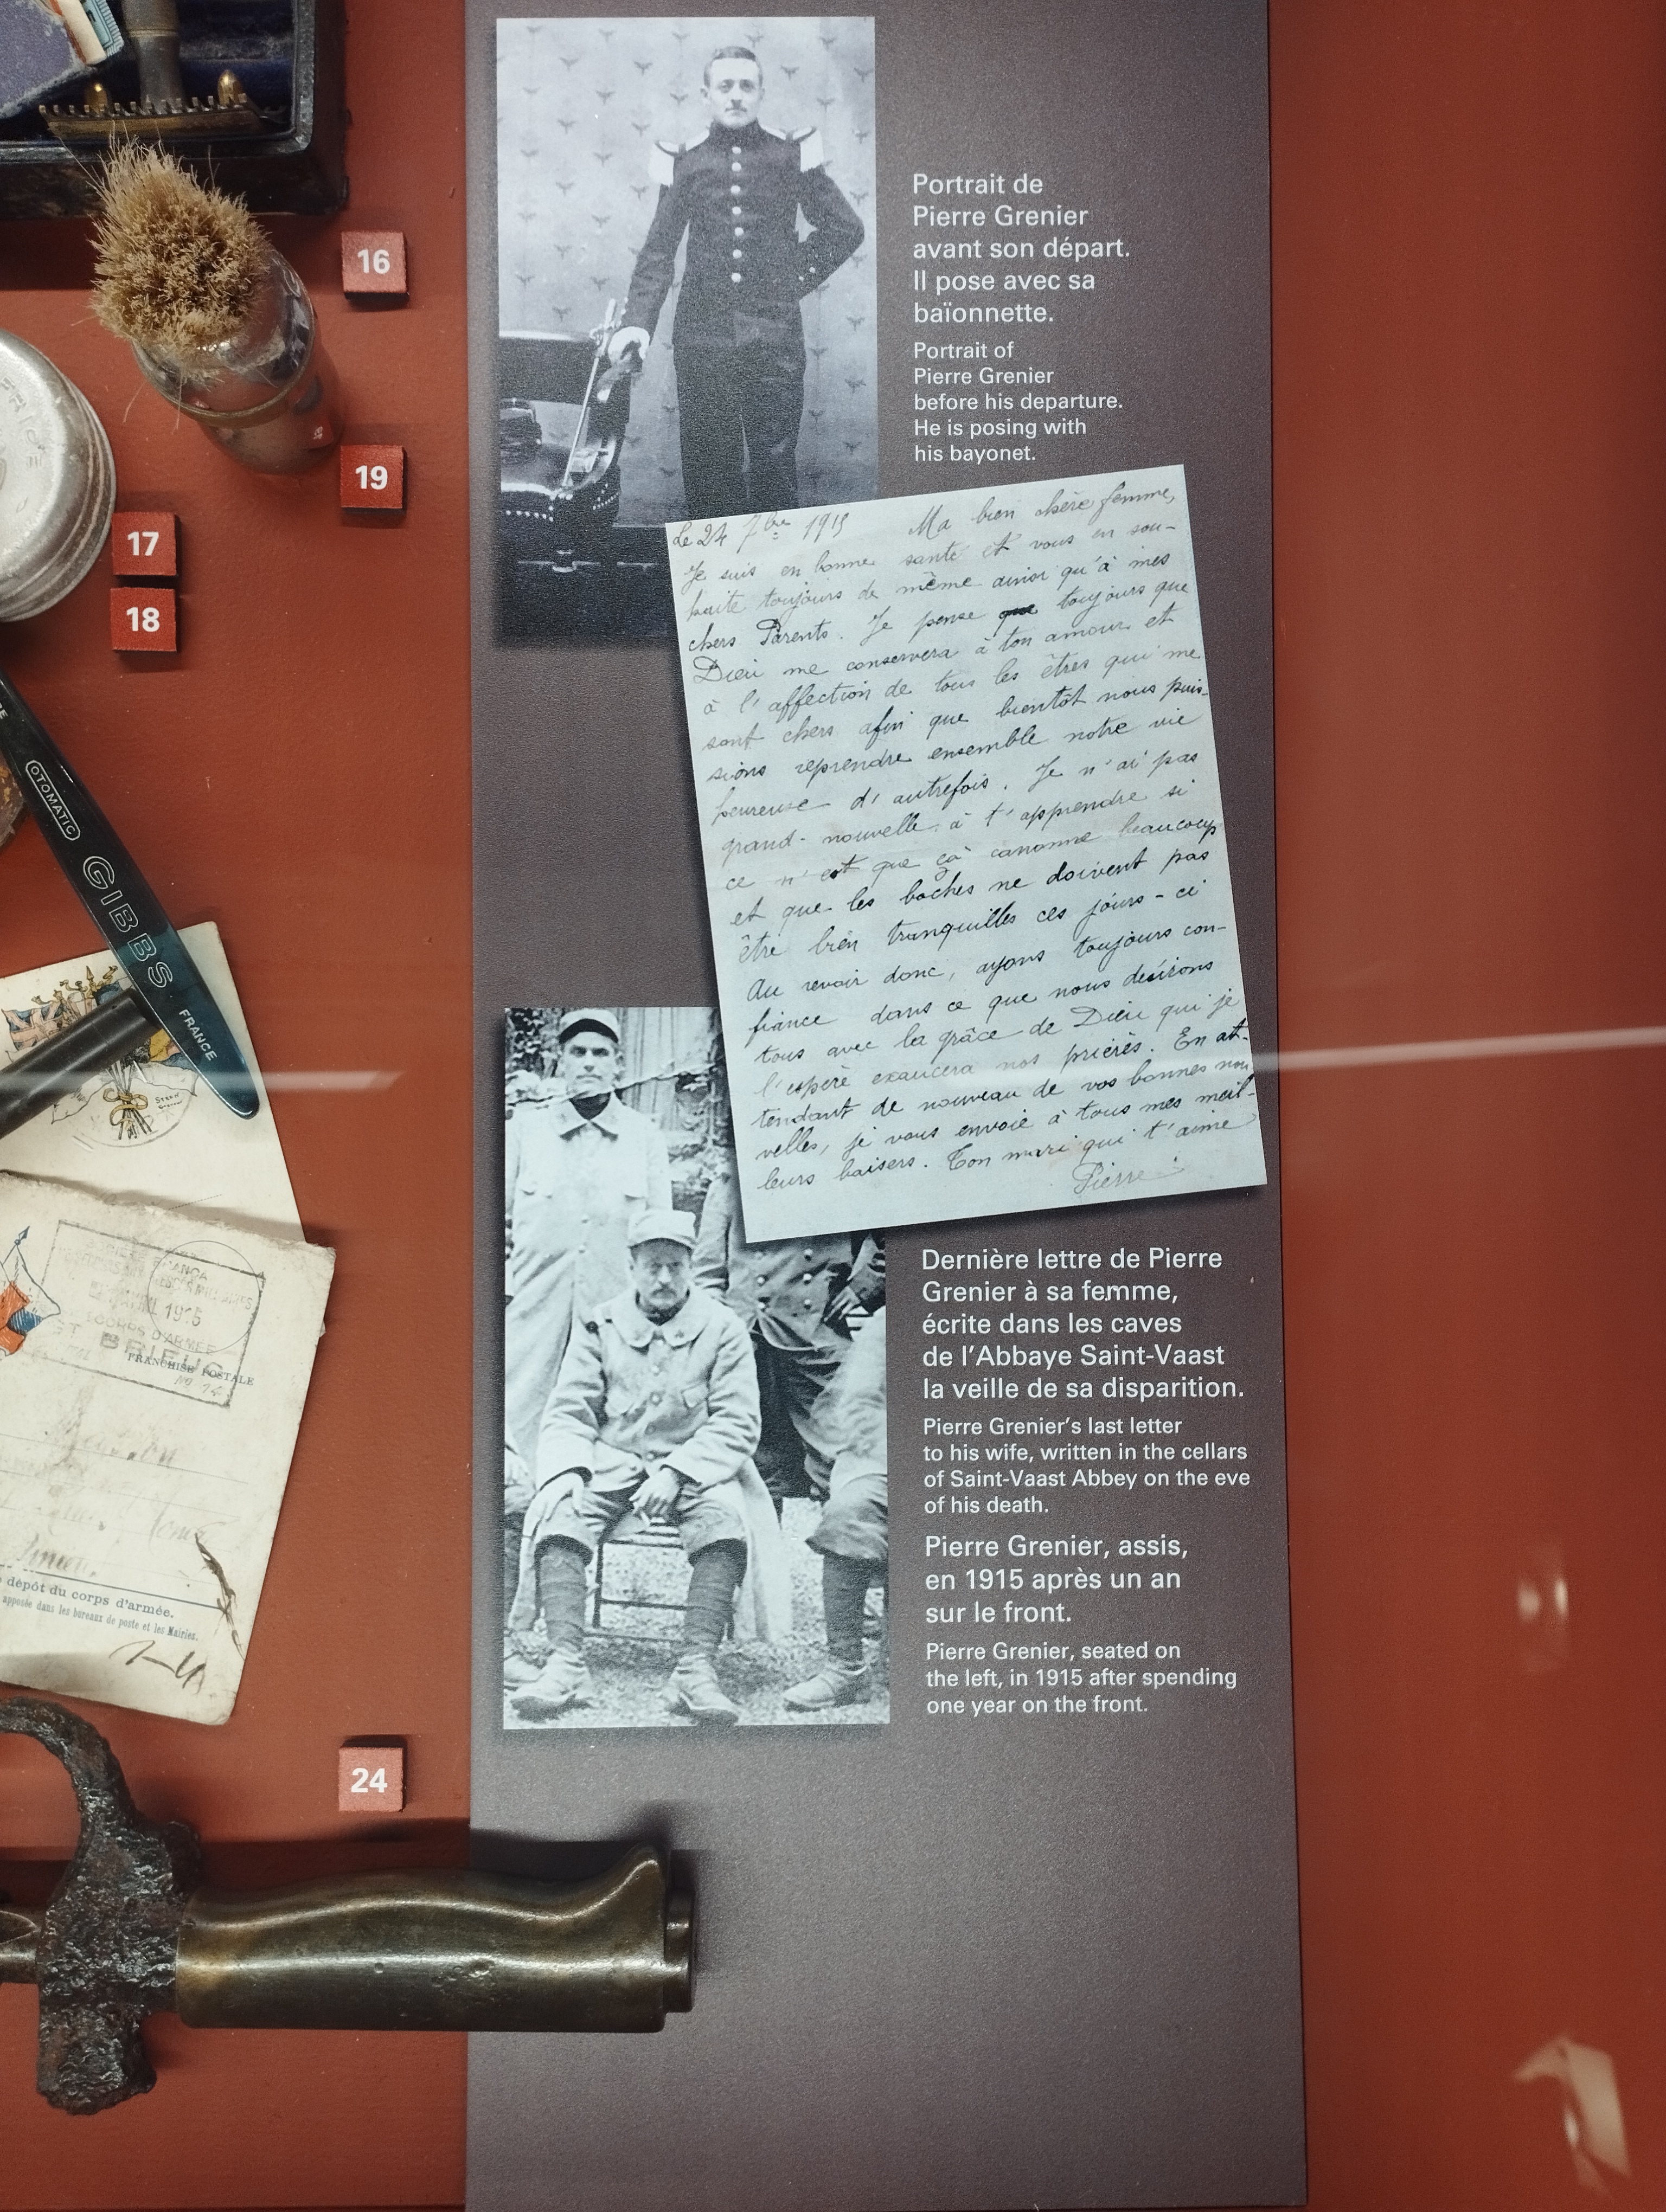 16
19
17
18
Portrait de
Pierre Grenier
avant son départ.
Il pose avec sa
baïonnette.
Portrait of
Pierre Grenier
before his departure.
He is posing with
his bayonet.
Le 24 7bre 1915 Ma bien chère femme,
Je suis en bonne santé et vous en sou-
haite toujours de même ainsi qu'à mes
chers Parents. Je pense que toujours que
Dieu me conservera à ton amour et
à l'affection de tous les êtres qui me
sont chers afin que bientôt nous puis-
sions reprendre ensemble notre vie
heureuse d'autrefois. Je n'ai pas
grand-nouvelle à t'apprendre si
ce n'est que çà canonne beaucoup
et que les boches ne doivent pas
être bien tranquilles ces jours-ci
Au revoir donc, ayons toujours con-
fiance dans ce que nous désirons
tous avec la grâce de Dieu qui je
l'espère exaucera nos prières. En at-
tendant de nouveau de vos bonnes nou
velles, je vous envoie à tous mes meil-
leurs baisers. Ton mari qui t'aime
Pierre
OTOMATIC
GIBBS
FRANCE
1915
CORPS D'ARMÉE
BRIEUC
FRANCHISE POSTALE
dépôt du corps d'armée.
apposée dans les bureaux de poste et les Mairies.
Dernière lettre de Pierre
Grenier à sa femme,
écrite dans les caves
de l'Abbaye Saint-Vaast
la veille de sa disparition.
Pierre Grenier's last letter
to his wife, written in the cellars
of Saint-Vaast Abbey on the eve
of his death.
Pierre Grenier, assis,
en 1915 après un an
sur le front.
Pierre Grenier, seated on
the left, in 1915 after spending
one year on the front.
24